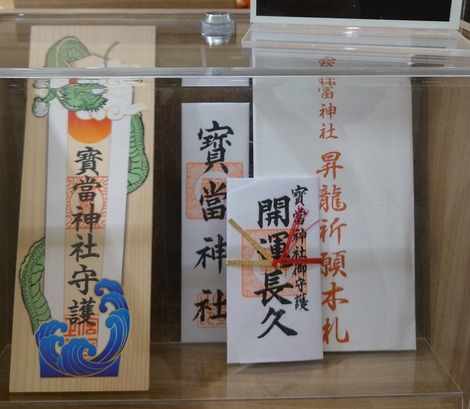 寳當神社守護
寳當神社
寳當神社御守護
開運長久
寳當神社
昇龍祈願木札